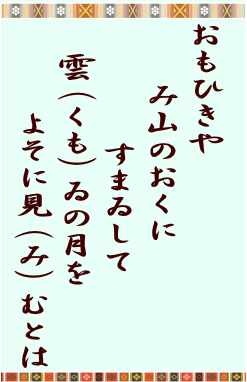 おもひきや
み山のおくに
すまゐして
雲（くも）ゐの月を
よそに見（み）むとは